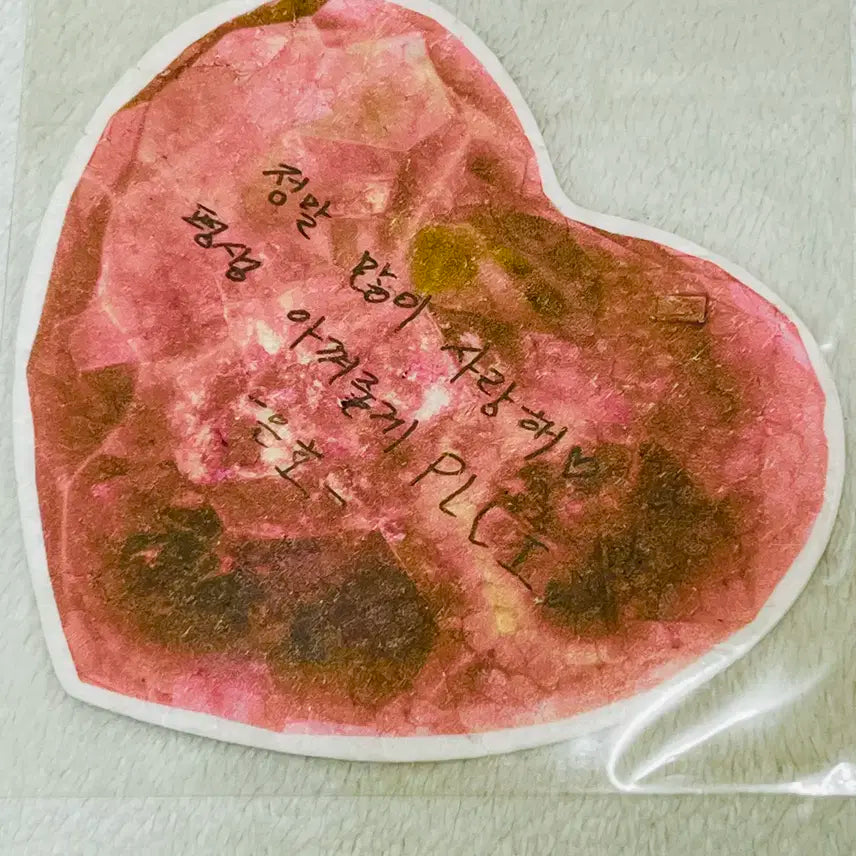 정말 많이 사랑해♡
평생 아껴줄게 PLLI
은호 -